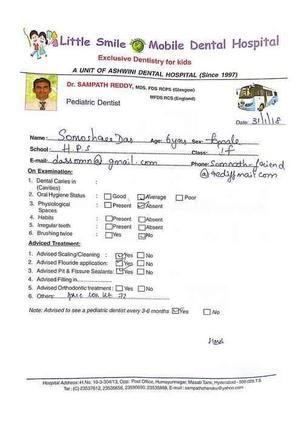 Little Smile Mobile Dental Hospital
Exclusive Dentistry for kids
A UNIT OF ASHWINI DENTAL HOSPITAL (Since 1997)
Dr. SAMPATH REDDY, MDS, FDS RCPS (Glasgow)
MFDS RCS (England)
Pediatric Dentist
Date: 31/1/18
Name: Somoshree Das Age: 6 years Sex: Female
School: H.P.S Class: I
E-mail: @gmail.com Phone:
@rediffmail.com
On Examination:
1. Dental Caries in :
(Cavities)
2. Oral Hygiene Status : Good Average Poor
3. Physiological : Present Absent
Spaces
4. Habits : Present Absent
5. Irregular teeth : Present Absent
6. Brushing twice : Yes No
Adviced Treatment:
1. Advised Scaling/Cleaning : Yes No
2. Advised Flouride application: Yes No
3. Advised Pit & Fissure Sealants: Yes No
4. Advised Filling in
5. Advised Orthodontic treatment : Yes No
6. Others:
Note: Advised to see a pediatric dentist every 3-6 months Yes No
Hospital Address: H.No. 10-3-304/13, Opp. Post Office, Humayunnagar, Masab Tank, Hyderabad - 500 028.T.S